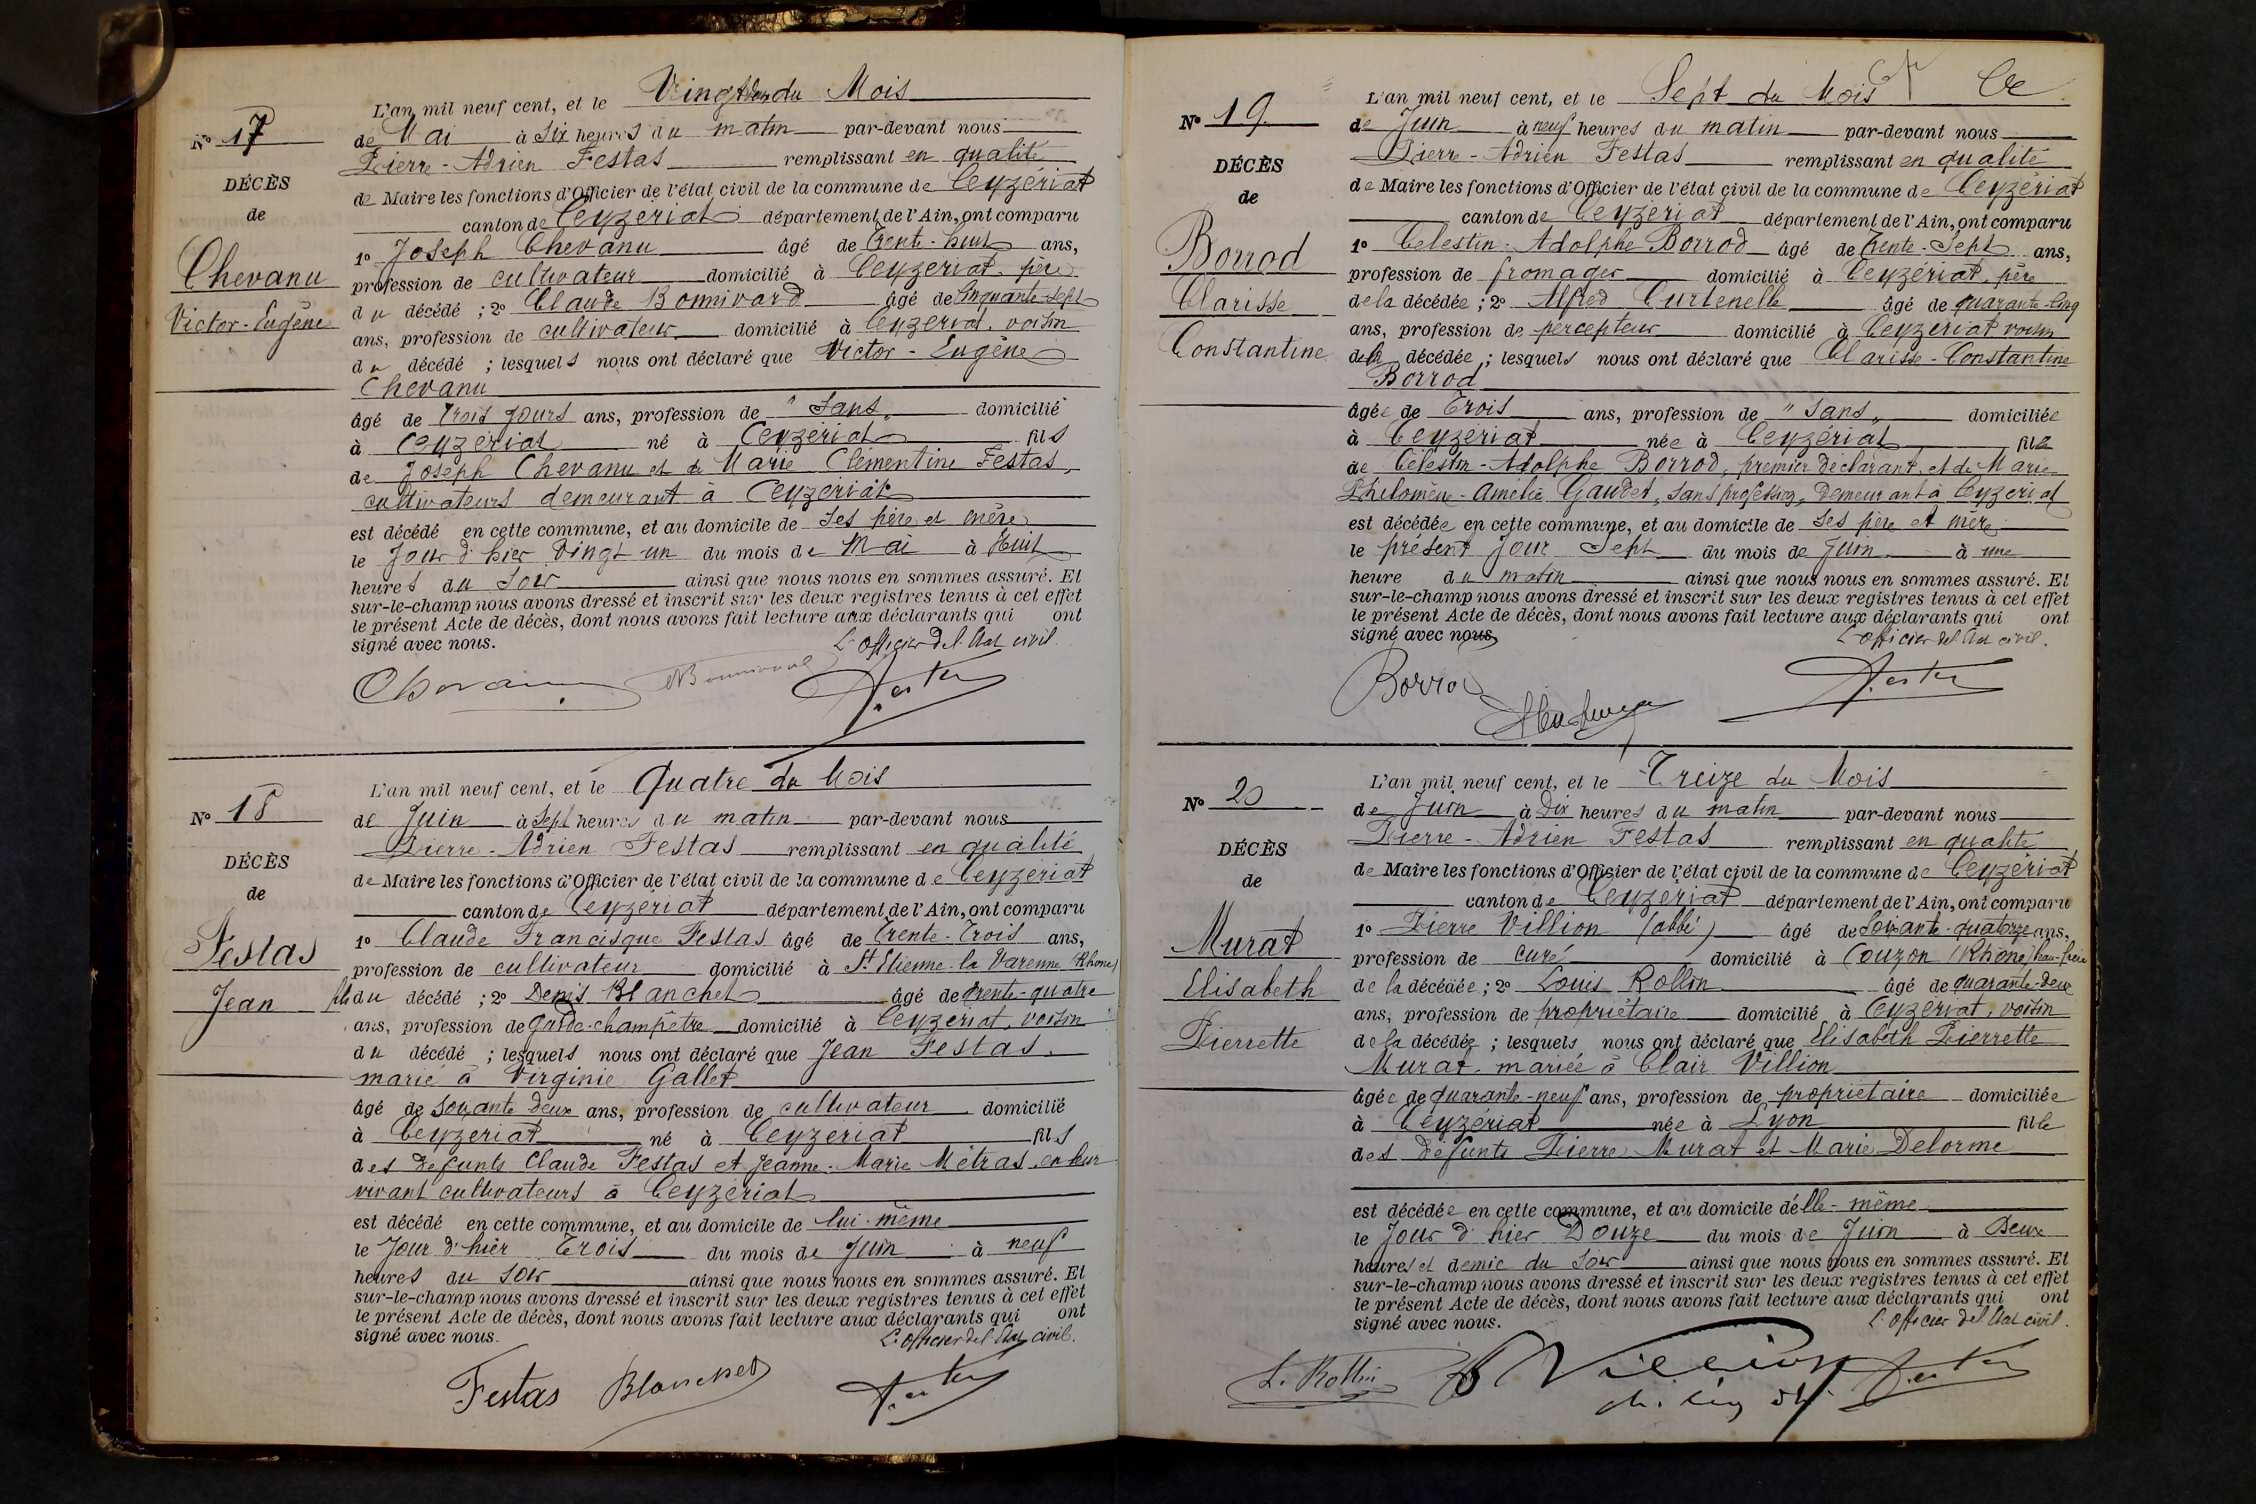 L'an mil neuf cent, et le Vingt deux du Mois
N° 17
de Mai à Six heures du matin par-devant nous
Pierre-Adrien Festas remplissant en qualité
DÉCÈS
de Maire les fonctions d'Officier de l'état civil de la commune de Ceyzériat
de
canton de Ceyzériat département de l'Ain, ont comparu
1° Joseph Chevanu âgé de Trente-huit ans,
Chevanu
profession de cultivateur domicilié à Ceyzeriat, père
du décédé ; 2° Claude Bonnivard âgé de Cinquante-sept
Victor-Eugène
ans, profession de cultivateur domicilié à Ceyzeriat, voisin
du décédé ; lesquels nous ont déclaré que Victor-Eugène
Chevanu
âgé de trois jours ans, profession de "Sans" domicilié
à Ceyzériat né à Ceyzériat fils
de Joseph Chevanu et de Marie Clémentine Festas,
cultivateurs demeurant à Ceyzériat
est décédé en cette commune, et au domicile de ses père et mère
le Jour d'hier Vingt un du mois de Mai à Huit
heures du soir ainsi que nous nous en sommes assuré. Et
sur-le-champ nous avons dressé et inscrit sur les deux registres tenus à cet effet
le présent Acte de décès, dont nous avons fait lecture aux déclarants qui ont
signé avec nous. L'officier de l'état civil.
Bonnivard
L'an mil neuf cent, et le Quatre du Mois
N° 18
de Juin à Sept heures du matin par-devant nous
Pierre-Adrien Festas remplissant en qualité
DÉCÈS
de Maire les fonctions d'Officier de l'état civil de la commune de Ceyzériat
de
canton de Ceyzériat département de l'Ain, ont comparu
1° Claude Francisque Festas âgé de Trente-Trois ans,
Festas
profession de cultivateur domicilié à St Etienne-la Varenne (Rhône)
Jean
fils du décédé ; 2° Denis Blanchet âgé de Trente-quatre
ans, profession de garde-champêtre domicilié à Ceyzériat, voisin
du décédé ; lesquels nous ont déclaré que Jean Festas,
marié à Virginie Gallet
âgé de soixante deux ans, profession de cultivateur domicilié
à Ceyzeriat né à Ceyzeriat fils
des défunts Claude Festas et Jeanne-Marie Métras, en leur
vivant cultivateurs à Ceyzériat
est décédé en cette commune, et au domicile de lui-même
le Jour d'hier Trois du mois de Juin à neuf
heures du soir ainsi que nous nous en sommes assuré. Et
sur-le-champ nous avons dressé et inscrit sur les deux registres tenus à cet effet
le présent Acte de décès, dont nous avons fait lecture aux déclarants qui ont
signé avec nous. L'officier de l'état civil.
Festas Blanchet
L'an mil neuf cent, et le Sept du Mois Ce
N° 19
de Juin à neuf heures du matin par-devant nous
Pierre-Adrien Festas remplissant en qualité
DÉCÈS
de Maire les fonctions d'Officier de l'état civil de la commune de Ceyzériat
de
canton de Ceyzériat département de l'Ain, ont comparu
1° Celestin-Adolphe Borrod âgé de Trente-Sept ans,
Borrod
profession de fromager domicilié à Ceyzériat, père
Clarisse
de la décédée ; 2° Alfred Curtenelle âgé de quarante-cinq
ans, profession de percepteur domicilié à Ceyzériat voisin
Constantine
de la décédée ; lesquels nous ont déclaré que Clarisse-Constantine
Borrod
âgée de Trois ans, profession de "Sans" domiciliée
à Ceyzériat née à Ceyzériat fille
de Célestin-Adolphe Borrod, premier déclarant, et de Marie
Philomène-Amélie Gaudet, sans profession, demeurant à Ceyzériat
est décédée en cette commune, et au domicile de ses père et mère
le présent Jour Sept du mois de Juin à une
heure du matin ainsi que nous nous en sommes assuré. Et
sur-le-champ nous avons dressé et inscrit sur les deux registres tenus à cet effet
le présent Acte de décès, dont nous avons fait lecture aux déclarants qui ont
signé avec nous. L'officier de l'état civil.
Borrod
L'an mil neuf cent, et le Treize du Mois
N° 20
de Juin à Dix heures du matin par-devant nous
Pierre-Adrien Festas remplissant en qualité
DÉCÈS
de Maire les fonctions d'Officier de l'état civil de la commune de Ceyzériat
de
canton de Ceyzériat département de l'Ain, ont comparu
1° Pierre Villion (abbé) âgé de Soixante-quatorze ans,
Murat
profession de curé domicilié à Couzon (Rhône) beau-frère
Elisabeth
de la décédée ; 2° Louis Rollin âgé de quarante-deux
ans, profession de propriétaire domicilié à Ceyzériat, voisin
Pierrette
de la décédée ; lesquels nous ont déclaré que Elisabeth Pierrette
Murat, mariée à Clair Villion
âgée de quarante-neuf ans, profession de propriétaire domiciliée
à Ceyzériat née à Lyon fille
des défunts Pierre Murat et Marie Delorme
est décédée en cette commune, et au domicile d'elle-même
le Jour d'hier Douze du mois de Juin à Deux
heures et demie du soir ainsi que nous nous en sommes assuré. Et
sur-le-champ nous avons dressé et inscrit sur les deux registres tenus à cet effet
le présent Acte de décès, dont nous avons fait lecture aux déclarants qui ont
signé avec nous. L'officier de l'état civil.
L. Rollin Villion